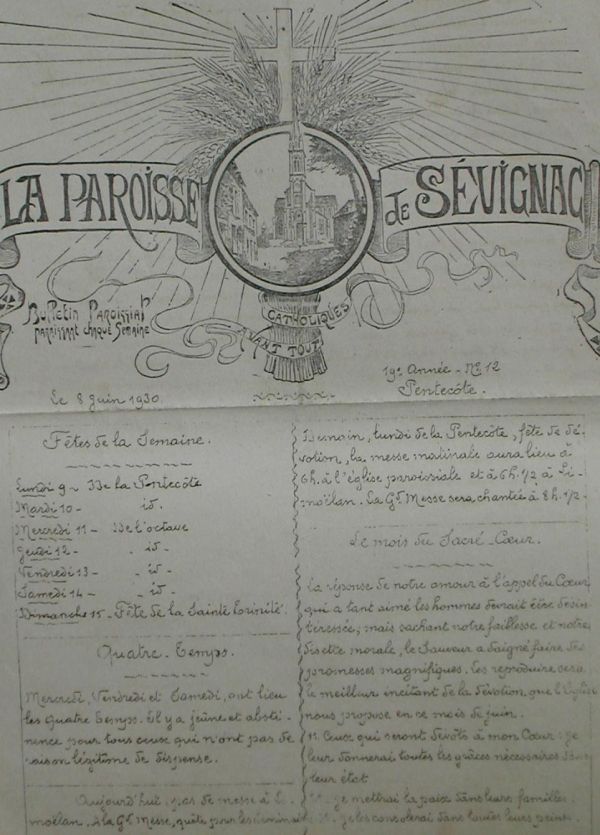 LA PAROISSE de SÉVIGNAC
CATHOLIQUES
AVANT TOUT
Bulletin Paroissial
paraissant chaque Semaine
19e Année - No 12
Pentecôte.
Le 8 Juin 1930
Fêtes de la Semaine.
Lundi 9 - De la Pentecôte
Mardi 10 - id.
Mercredi 11 - De l'octave
Jeudi 12 - id -
Vendredi 13 - id -
Samedi 14 - id -
Dimanche 15 - Fête de la Sainte Trinité.
Quatre-Temps.
Mercredi, Vendredi et Samedi, ont lieu
les Quatre Temps. Il y a jeûne et absti-
nence pour tous ceux qui n'ont pas de
raison légitime de dispense.
Aujourd'hui, pas de messe à Li-
moëlan. A la Gd Messe, quête pour les
Demain, lundi de la Pentecôte, fête de dé-
votion, la messe matinale aura lieu à
6h. à l'église paroissiale et à 6h. 1/2 à Li-
moëlan. La Gd Messe sera chantée à 8h. 1/2.
Le mois du Sacré-Cœur.
La réponse de notre amour à l'appel du Cœur
qui a tant aimé les hommes devrait être désin-
téressée; mais sachant notre faiblesse et notre
disette morale, le Sauveur a daigné faire des
promesses magnifiques. Les reproduire sera
le meilleur incitant de la dévotion que l'Eglise
nous propose en ce mois de juin.
Ceux qui seront dévôts à mon Cœur: je
leur donnerai toutes les grâces nécessaires dans
leur état
je mettrai la paix dans leurs familles.
je les consolerai dans toutes leurs peines.